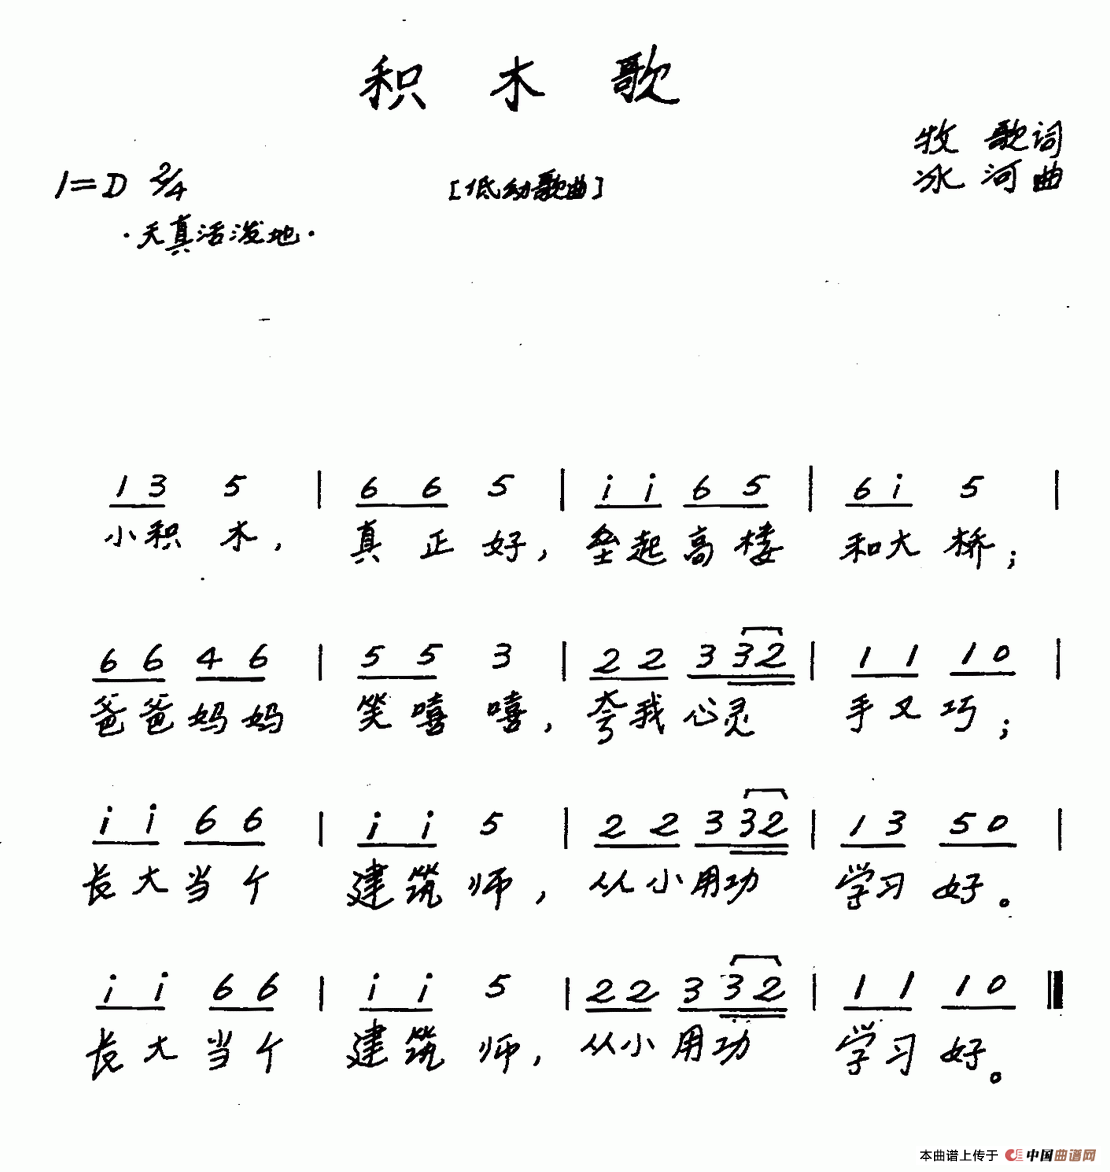 积木歌
牧歌词
1=D 2/4 [低幼歌曲] 冰河曲
·天真活泼地·
1 3 5 | 6 6 5 | i i 6 5 | 6 i 5 |
小积木, 真正好, 垒起高楼 和大桥;
6 6 4 6 | 5 5 3 | 2 2 3 3 2 | 1 1 1 0 |
爸爸妈妈 笑嘻嘻, 夸我心灵 手又巧;
i i 6 6 | i i 5 | 2 2 3 3 2 | 1 3 5 0 |
长大当个 建筑师, 从小用功 学习好。
i i 6 6 | i i 5 | 2 2 3 3 2 | 1 1 1 0 ‖
长大当个 建筑师, 从小用功 学习好。
本曲谱上传于 中国曲谱网